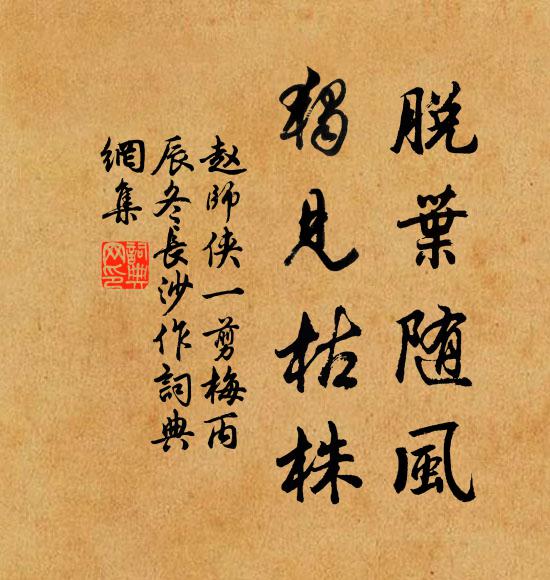 脱葉随風
獨見枯株
赵師侠一剪梅丙
辰冬長沙作詞典
網集
詞典
网印